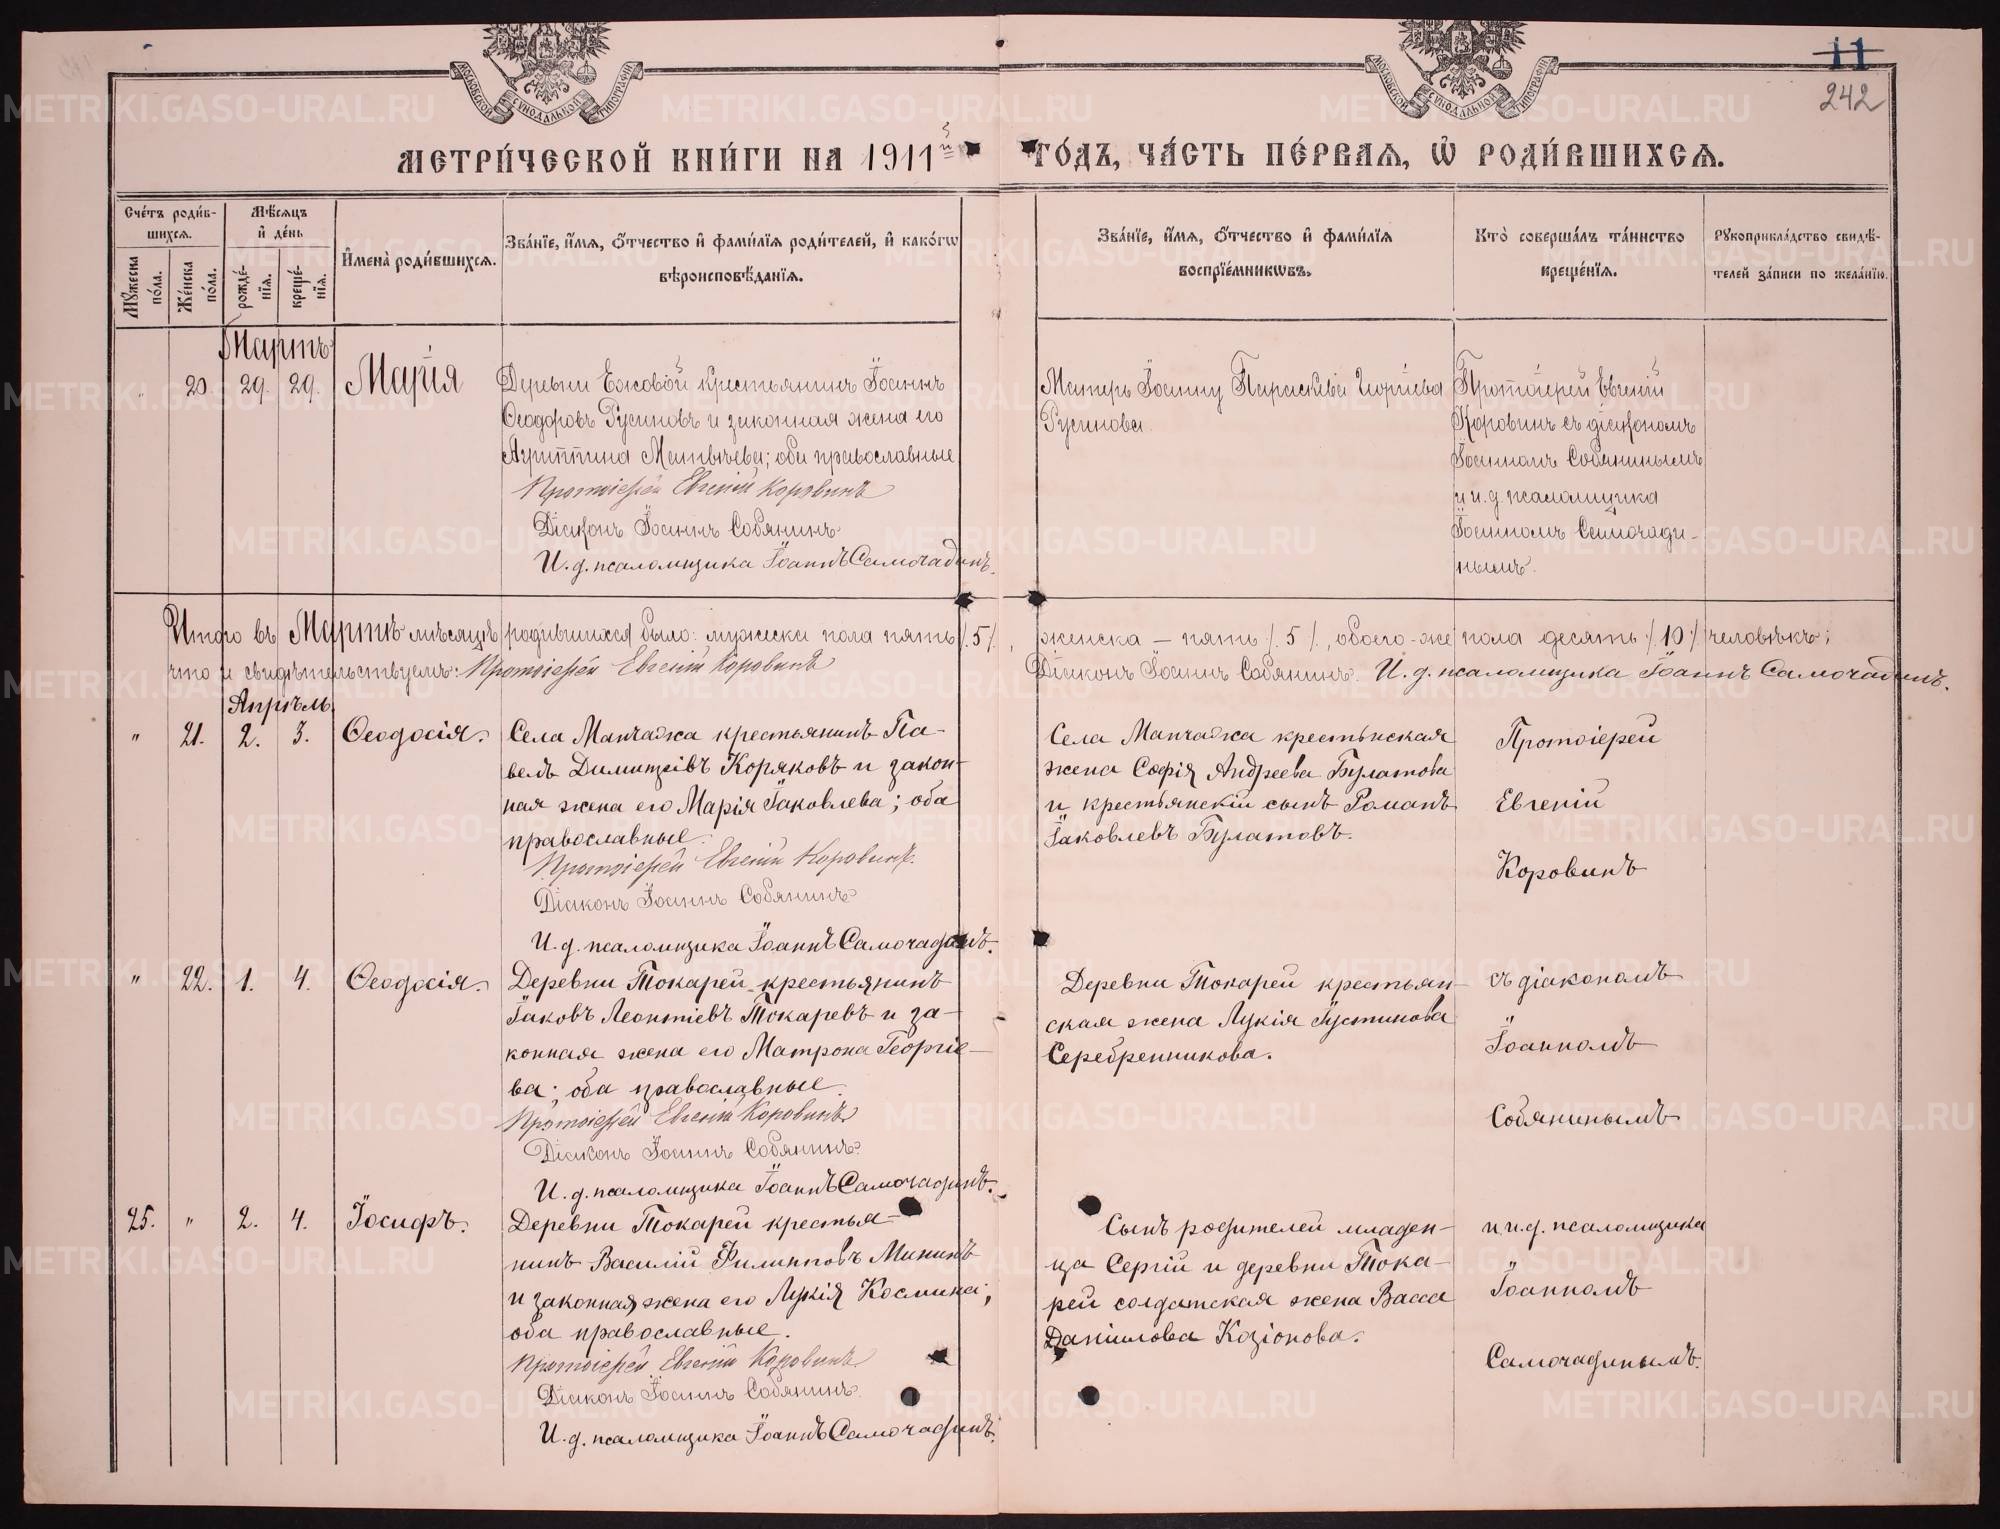 11
242
МОСКОВСКОЙ СѴНОДАЛЬНОЙ ТИПОГРАФІИ
МОСКОВСКОЙ СѴНОДАЛЬНОЙ ТИПОГРАФІИ
МЕТРИ́ЧЕСКОЙ КНИ́ГИ НА 1911й ГО́ДЪ, ЧА́СТЬ ПЕ́РВАѦ, Ѽ РОДИ́ВШИХСѦ.
Сче́тъ роди́в-
шихсѧ.
Мꙋжеска по́ла.
Же́нска по́ла.
Мѣ́сѧцъ
и҆ де́нь
рожде́нїѧ.
креще́нїѧ.
И҆мена̀ роди́вшихсѧ.
Зва́нїе, и҆́мѧ, ѻ҆́тчество и҆ фами́лїѧ роди́телей, и҆ како́гѡ
вѣроисповѣ́данїѧ.
Зва́нїе, и҆́мѧ, ѻ҆́тчество и҆ фами́лїѧ
воспрїе́мникѡвъ.
Кто̀ соверша́лъ та́инство
креще́нїѧ.
Рꙋкоприкла́дство свидѣ́-
телей за́писи по жела́нїю.
Мартъ
" 20 29. 29. Марія
Деревни Ежовой крестьянинъ Іоаннъ
Ѳеодоровъ Русиновъ и законная жена его
Агриппина Матвѣева; оба православные
Протоіерей Евгеній Коровинъ
Діаконъ Іоаннъ Собянинъ
И. д. псаломщика Іоаннъ Самочадинъ.
Матерь Іоанну Параскева Георгіева
Русинова.
Протоіерей Евгеній
Коровинъ съ діакономъ
Іоанномъ Собянинымъ
и и. д. псаломщика
Іоанномъ Самочади-
нымъ.
Итого въ Мартѣ мѣсяцѣ родившихся было: мужеска пола пять /5/, женска – пять /5/, обоего-же пола десять /10/ человѣкъ;
что и свидѣтельствуемъ: Протоіерей Евгеній Коровинъ Діаконъ Іоаннъ Собянинъ. И. д. псаломщика Іоаннъ Самочадинъ.
Апрѣль.
" 21. 2. 3. Ѳеодосія.
Села Манчажа крестьянинъ Па-
велъ Димитріевъ Коряковъ и закон-
ная жена его Марія Іаковлева; оба
православные.
Протоіерей Евгеній Коровинъ.
Діаконъ Іоаннъ Собянинъ
И. д. псаломщика Іоаннъ Самочадинъ.
Села Манчажа крестьянская
жена Софія Андреева Булатова
и крестьянскій сынъ Романъ
Іаковлевъ Булатовъ.
Протоіерей
Евгеній
Коровинъ
" 22. 1. 4. Ѳеодосія.
Деревни Токарей крестьянинъ
Іаковъ Леонтіевъ Токаревъ и за-
конная жена его Матрона Георгіе-
ва; оба православные.
Протоіерей Евгеній Коровинъ
Діаконъ Іоаннъ Собянинъ.
И. д. псаломщика Іоаннъ Самочадинъ.
Деревни Токарей крестьян-
ская жена Лукія Іустинова
Серебренникова.
съ діакономъ
Іоанномъ
Собянинымъ
25. " 2. 4. Іосифъ.
Деревни Токарей крестья-
нинъ Василій Филипповъ Мининъ
и законная жена его Лукія Космина;
оба православные.
Протоіерей Евгеній Коровинъ
Діаконъ Іоаннъ Собянинъ.
И. д. псаломщика Іоаннъ Самочадинъ.
Сынъ родителей младен-
ца Сергій и деревни Тока-
рей солдатская жена Васса
Даніилова Козіонова.
и и. д. псаломщика
Іоанномъ
Самочадинымъ.
METRIKI.GASO-URAL.RU